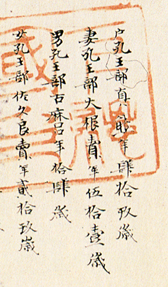 戸孔王部首 年肆拾玖歳
妻孔王部大根賣年伍拾壹歳
男孔王部古麻呂年拾肆歳
女孔王部佐久良賣年貳拾玖歳